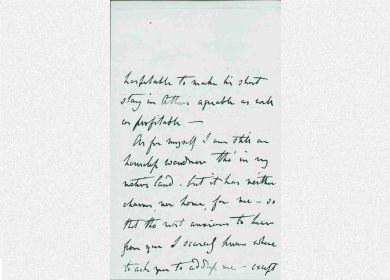 hospitable to make his short
stay in Athens agreable as well
as profitable. —
As for myself I am still an
homeless wanderer tho' in my
native land - but it has neither
charms nor home, for me - so
that tho' most anxious to hear
from you I scarcely know where
to ask you to address me - except